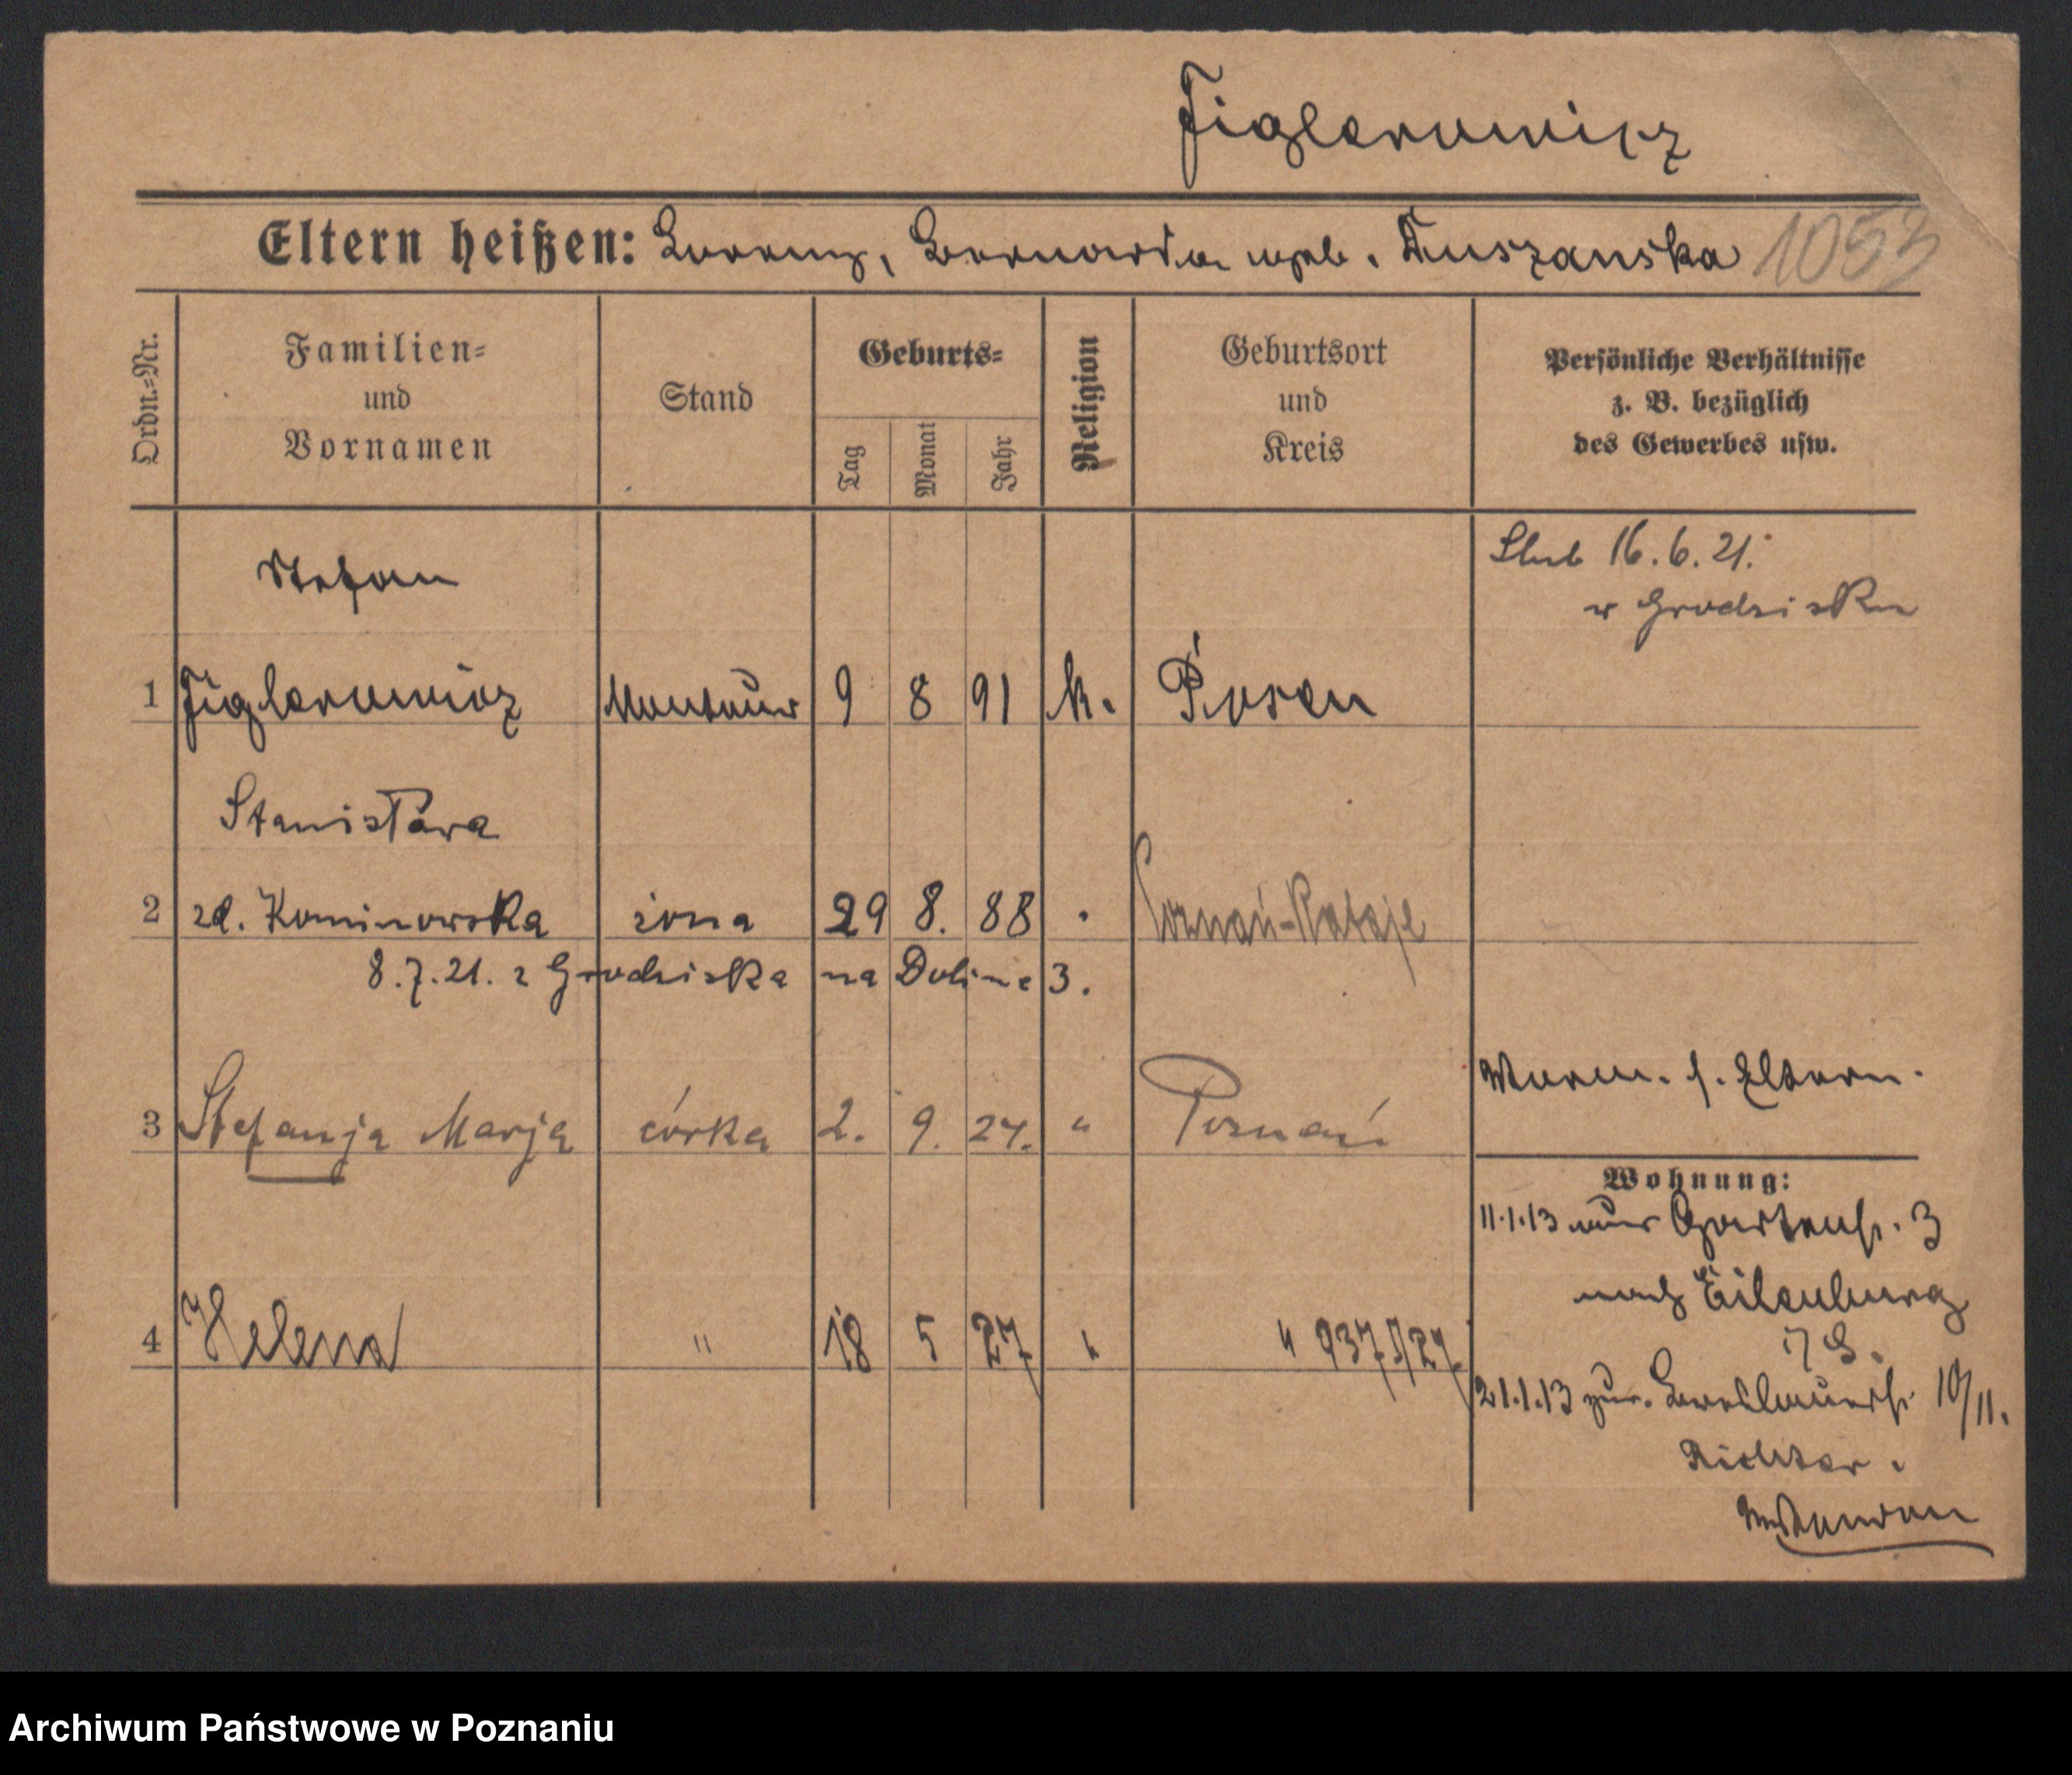 Figlerowicz
Eltern heißen: Lorenz, Bernardine geb. Tuszanska 1053
Ordn.-Nr.
Familien-
und
Vornamen
Stand
Geburts-
Tag
Monat
Jahr
Religion
Geburtsort
und
Kreis
Persönliche Verhältnisse
z. B. bezüglich
des Gewerbes usw.
Stefan
Slub 16.6.21.
w Grodzisku
1 Figlerowicz Monteur 9 8 91 k. Posen
Stanisława
2 zd. Kominowska żona 29 8. 88 Poznań-Rataje
8.7.21. z Grodziska na Dolinę 3.
Eltern.
3 Stefanja Marja córka 2. 9. 24. " Poznań
Wohnung:
11.1.13 Gartenstr. 3
nach Eilenburg
4 Helena " 18 5 27 " "
21.1.13 zur. Breslauerstr. 10/11.
Richter.
Archiwum Państwowe w Poznaniu